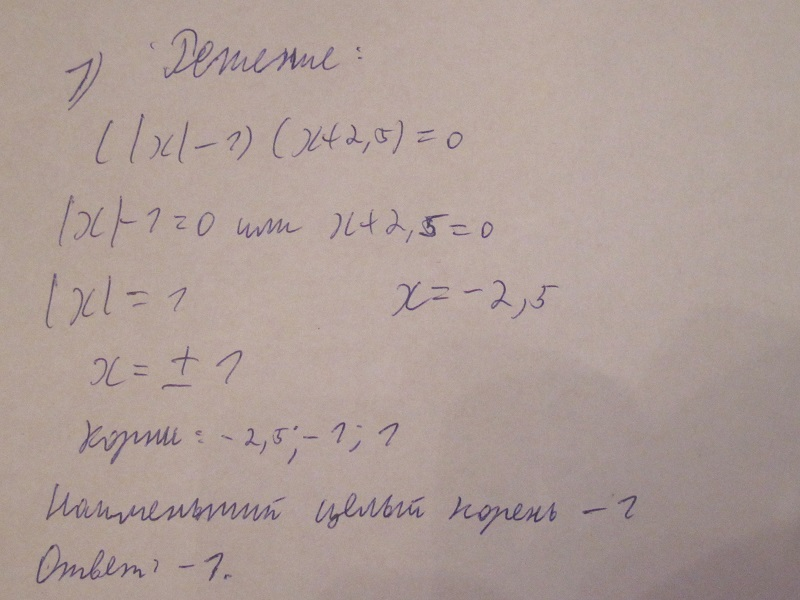 1) Решение:
(|x| - 1) (x+2,5) = 0
|x| - 1 = 0 или x+2,5 = 0
|x| = 1 x = -2,5
x = ± 1
Корни: -2,5; -1; 1
Наименьший целый корень - 1
Ответ: -1.